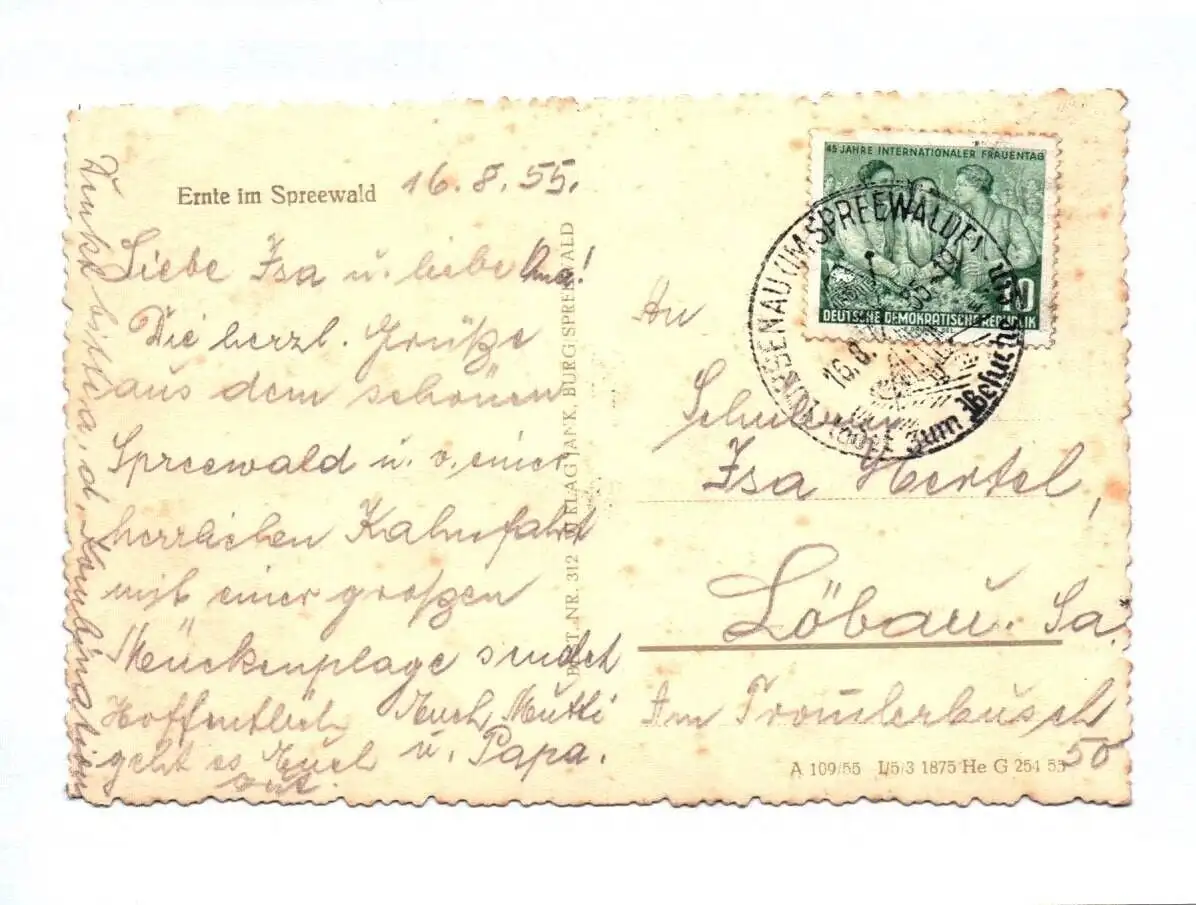 Ernte im Spreewald
16.8.55.
Liebe Isa u. liebe Oma!
Die herzl. Grüße
aus dem schönen
Spreewald u. v. einer
herrlichen Kahnfahrt
mit einer großen
Mückenplage sendet
Euch Mutti
u. Papa.
Hoffentlich
geht es Euch
gut.
BEST. NR. 312 VERLAG JANK, BURG SPREEWALD
45 JAHRE INTERNATIONALER FRAUENTAG
10
DEUTSCHE DEMOKRATISCHE REPUBLIK
LÜBBENAU (UM SPREEWALDE)
16.8.55-19
An
Schülerin
Isa Hertel,
Löbau. Sa.
Am
50
A 109/55 I/5/3 1875 He G 254 55